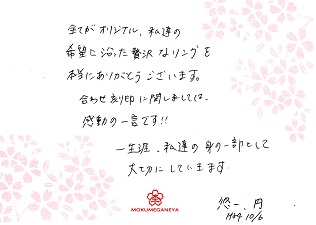 全てがオリジナル、私達の
希望に沿った贅沢なリングを
本当にありがとうございます。
合わせ刻印に関しましては、
感動の一言です!!
一生涯、私達の身の一部として
大切にしていきます。
悠一、円
H29 10/6
MOKUMEGANEYA